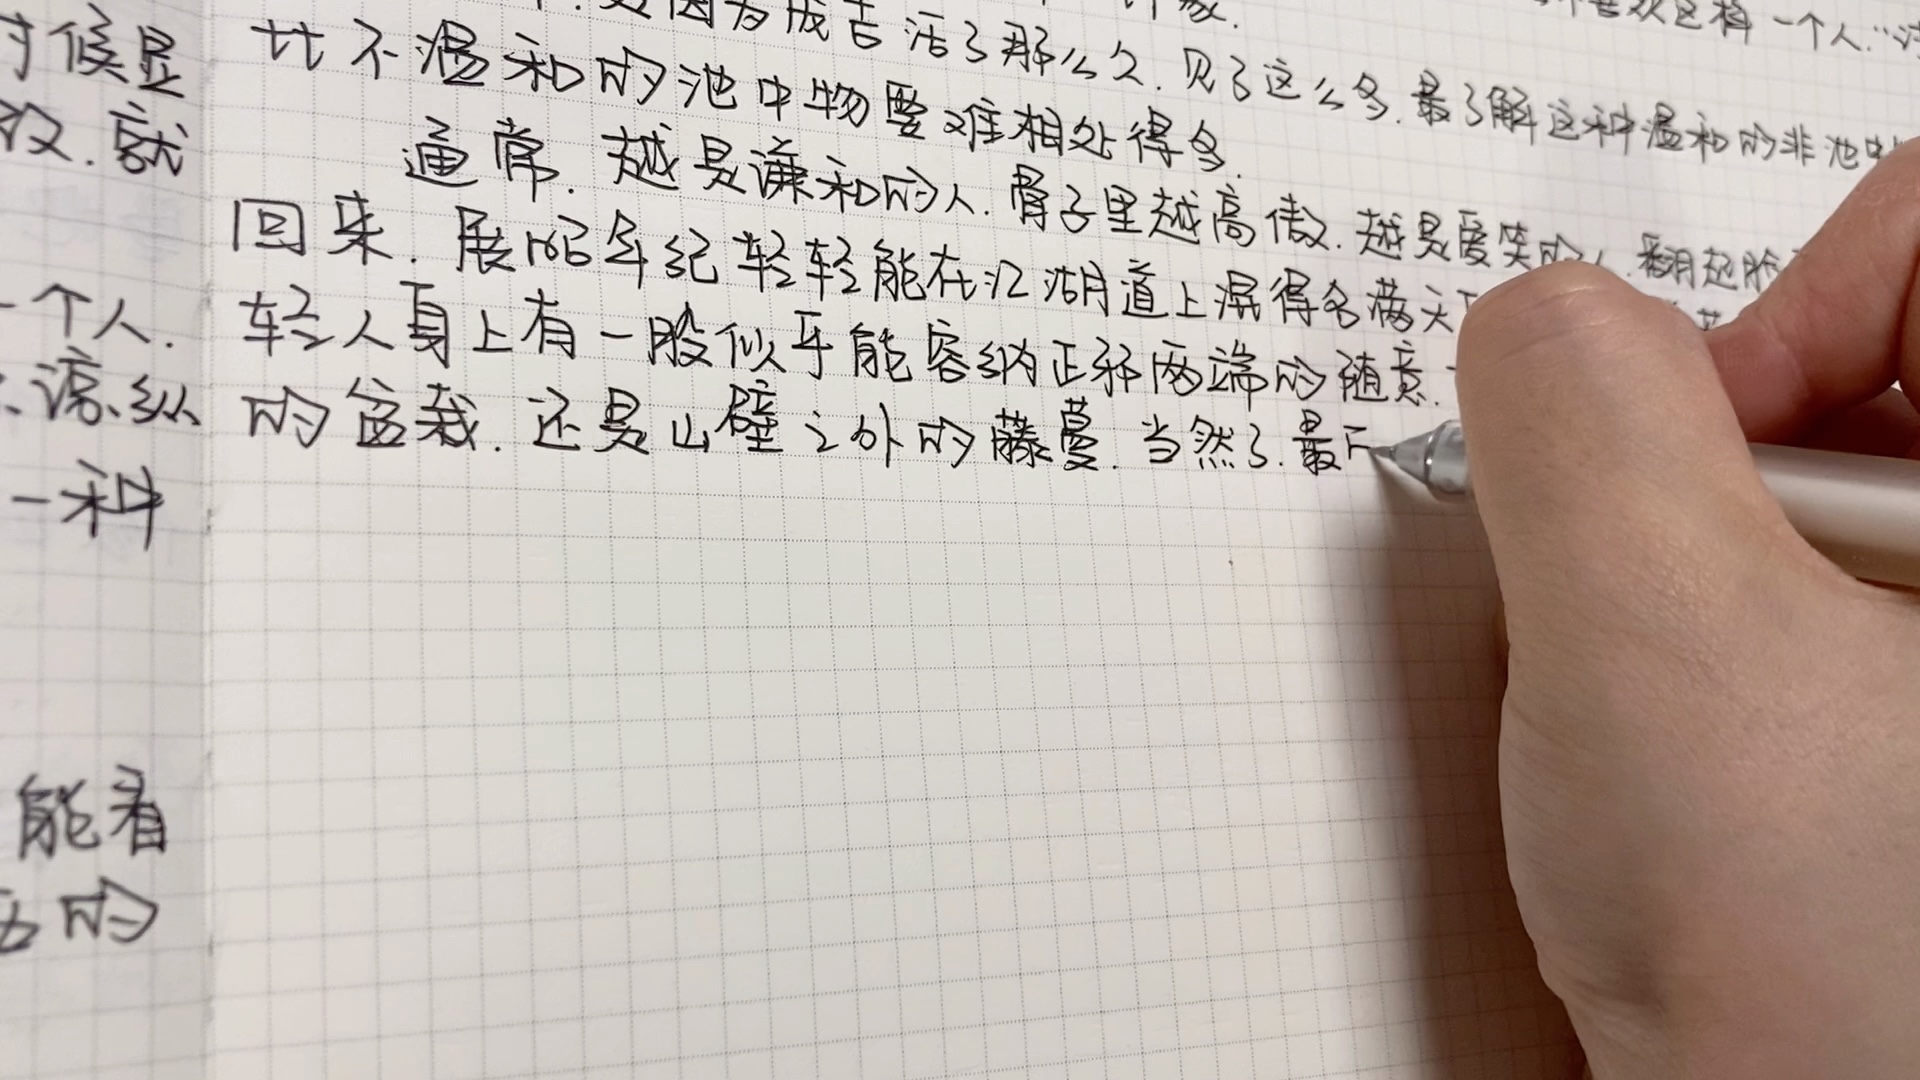 时候显
没.就
一个人.
谅.纵
一种
能看
的
因为成吉活了那么久.见了这么多.最了解这种温和的非池中
喜欢这样一个人
比不温和的池中物要难相处得多.
通常.越是谦和的人.骨子里越高傲.越是爱笑的人.翻起脸
回来.展昭年纪轻轻能在江湖道上混得名满天
轻人身上有一股似乎能容纳正邪两端的随意.
的盆栽.还是山壁之外的藤蔓.当然了.最